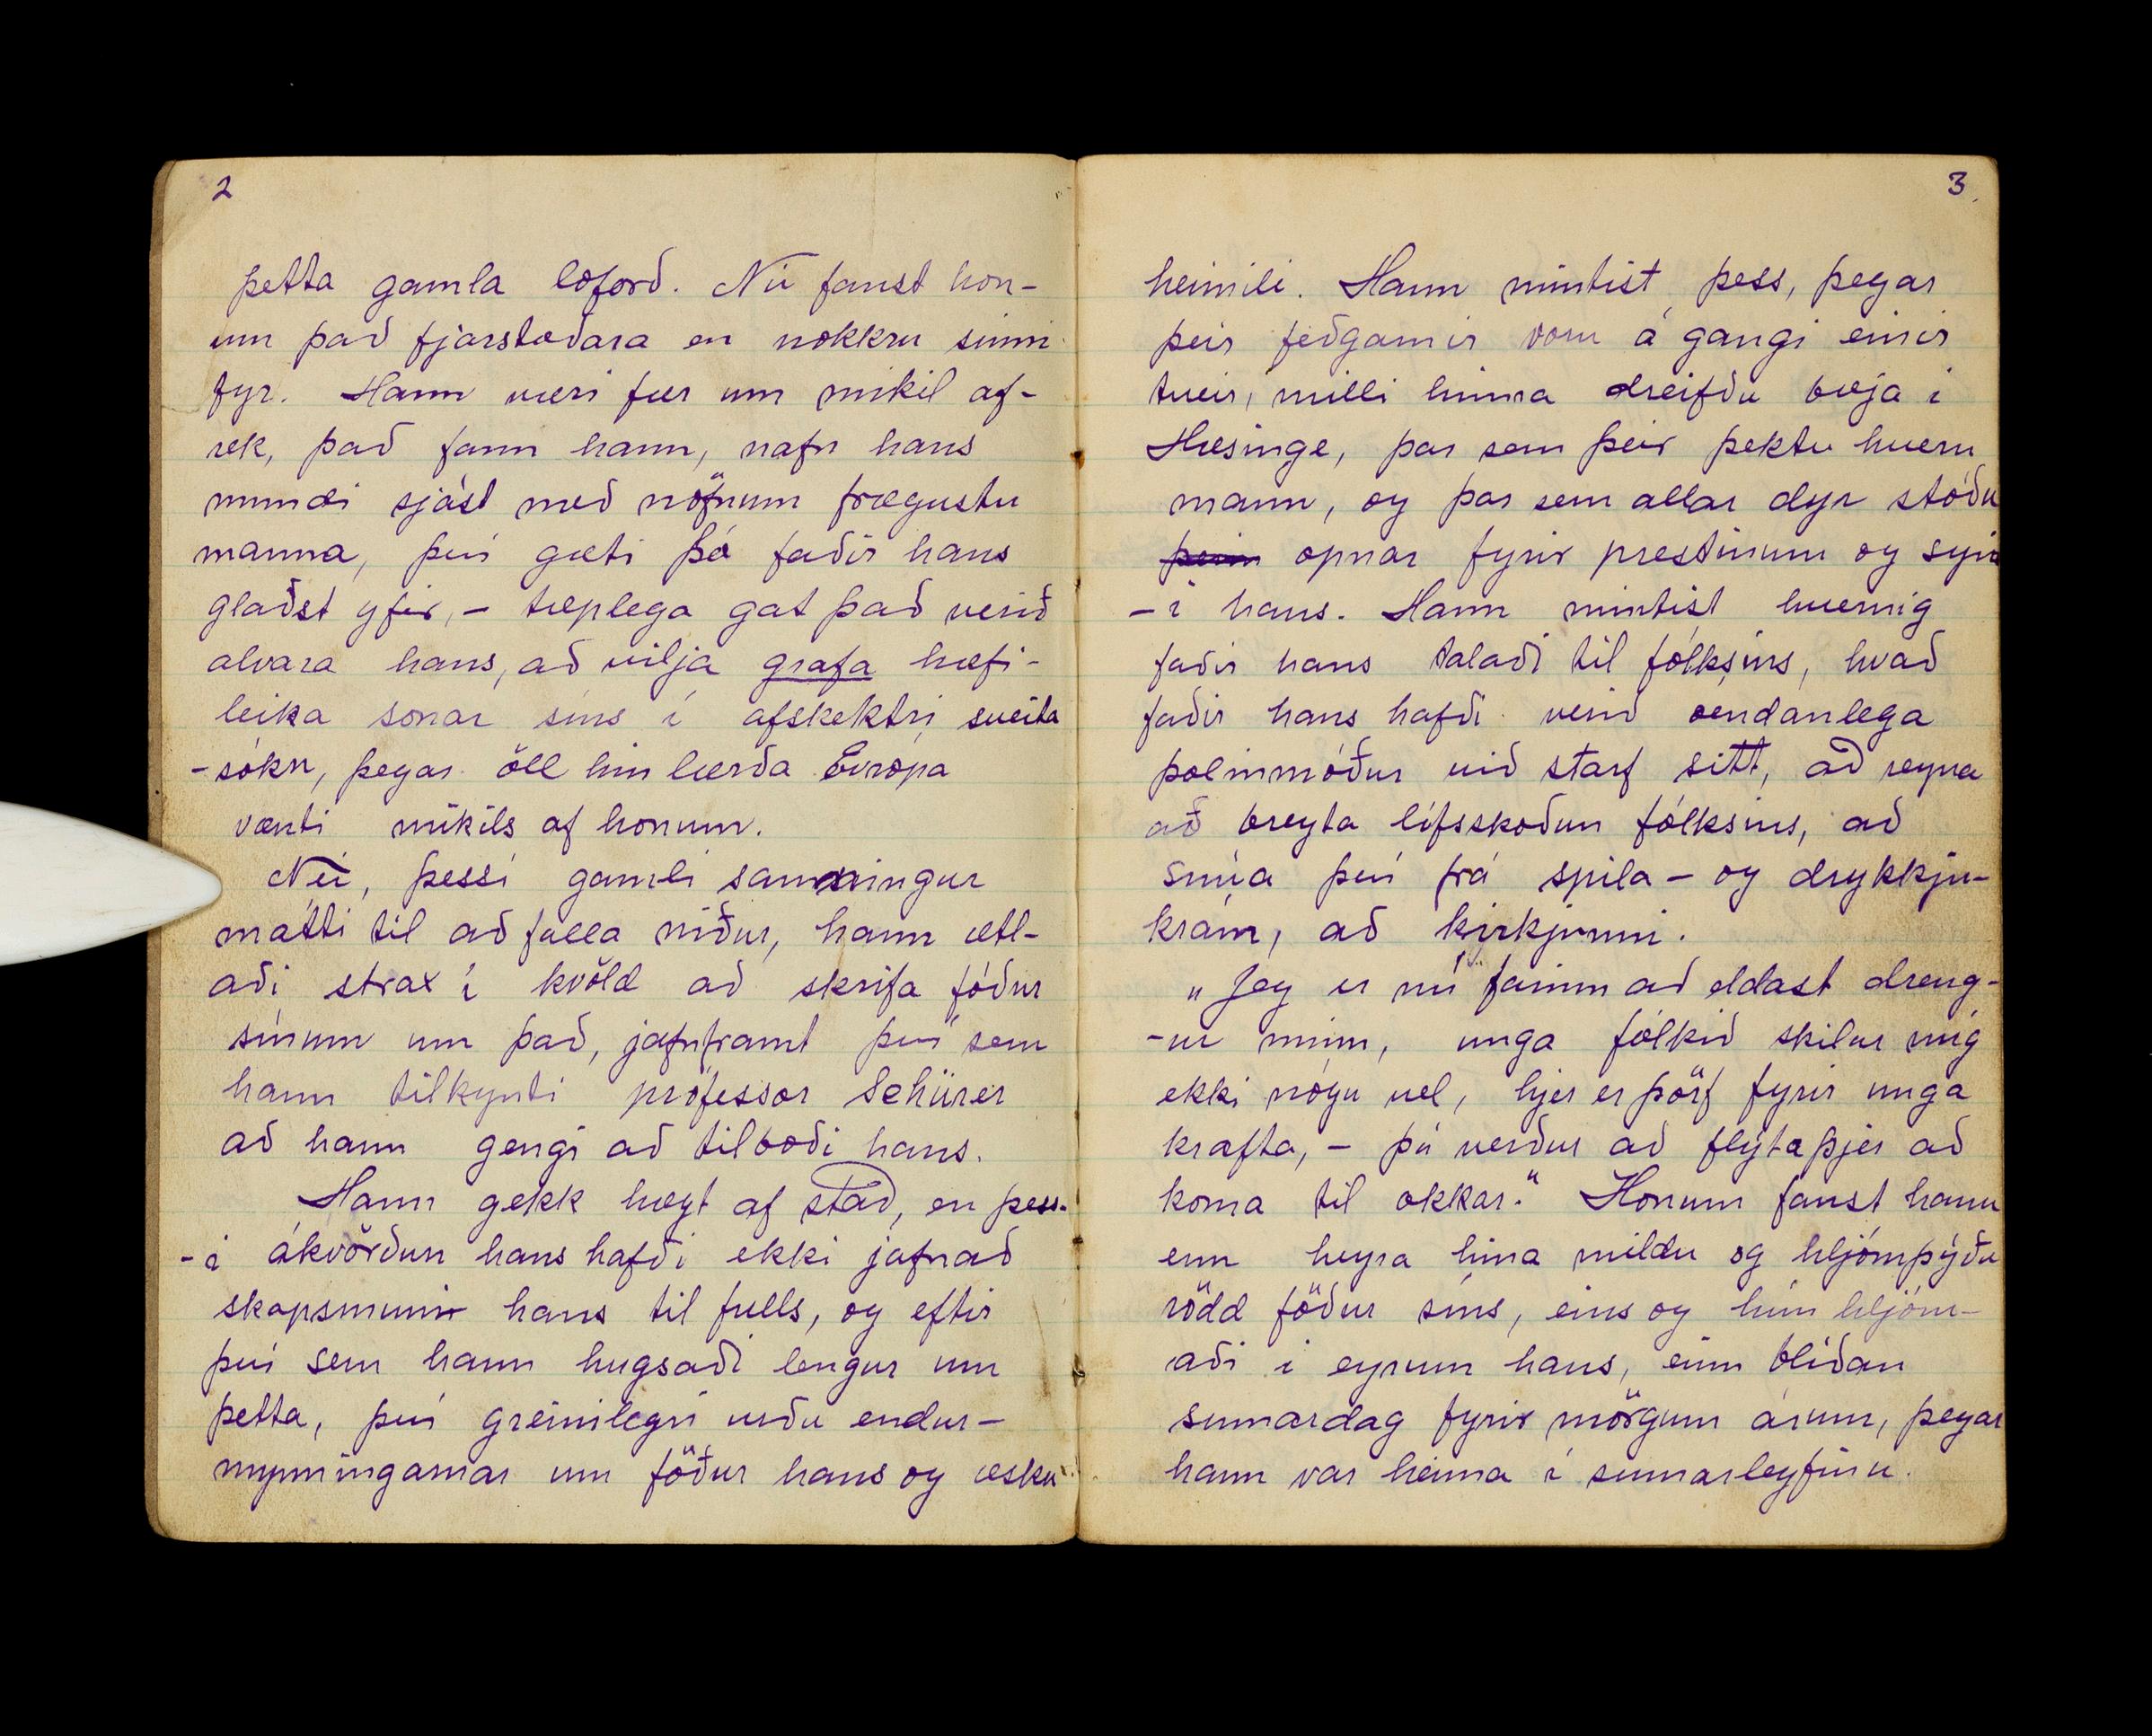 2
þetta gamla loforð. Nú fanst hon-
um það fjarstæðara en nokkru sinni
fyr. Hann væri fær um mikil af-
rek, það fann hann, nafn hans
mundi sjást með nöfnum frægustu
manna, því gæti þá faðir hans
glaðst yfir, – tæplega gat það verið
alvara hans, að vilja grafa hæfi-
leika sonar síns í afskektri sveita
-sókn, þegar öll hin lærða Evrópa
vænti mikils af honum.
Nei, þessi gamli samningur
mátti til að falla niður, hann ætl-
aði strax í kvöld að skrifa föður
sínum um það, jafnframt því sem
hann tilkynti prófessor Schürer
að hann gengi að tilboði hans.
Hann gekk hægt af stað, en þess-
-i ákvörðun hans hafði ekki jafnað
skapsmuni hans til fulls, og eftir
því sem hann hugsaði lengur um
þetta, því greinilegri urðu endur-
mynningarnar um föður hans og æsku
3
heimili. Hann mintist þess, þegar
þeir feðgarnir voru á gangi einir
tveir, milli hinna dreifðu bæja í
Hæsinge, þar sem þeir þektu hvern
mann, og þar sem allar dyr stóðu
þeim opnar fyrir prestinum og syni
-i hans. Hann mintist hvernig
faðir hans talaði til fólksins, hvað
faðir hans hafði verið óendanlega
þolinmóður við starf sitt, að reyna
að breyta lífsskoðun fólksins, að
snúa því frá spila- og drykkju-
krám, að kirkjunni.
„Jeg er nú farinn að eldast dreng-
-ur minn, unga fólkið skilur mig
ekki nógu vel, hjer er þörf fyrir unga
krafta, – þú verður að flýta þjer að
koma til okkar.“ Honum fanst hann
enn heyra hina mildu og hljómþýðu
rödd föður síns, eins og hún hljóm-
aði í eyrum hans, einn blíðan
sumardag fyrir mörgum árum, þegar
hann var heima í sumarleyfinu.